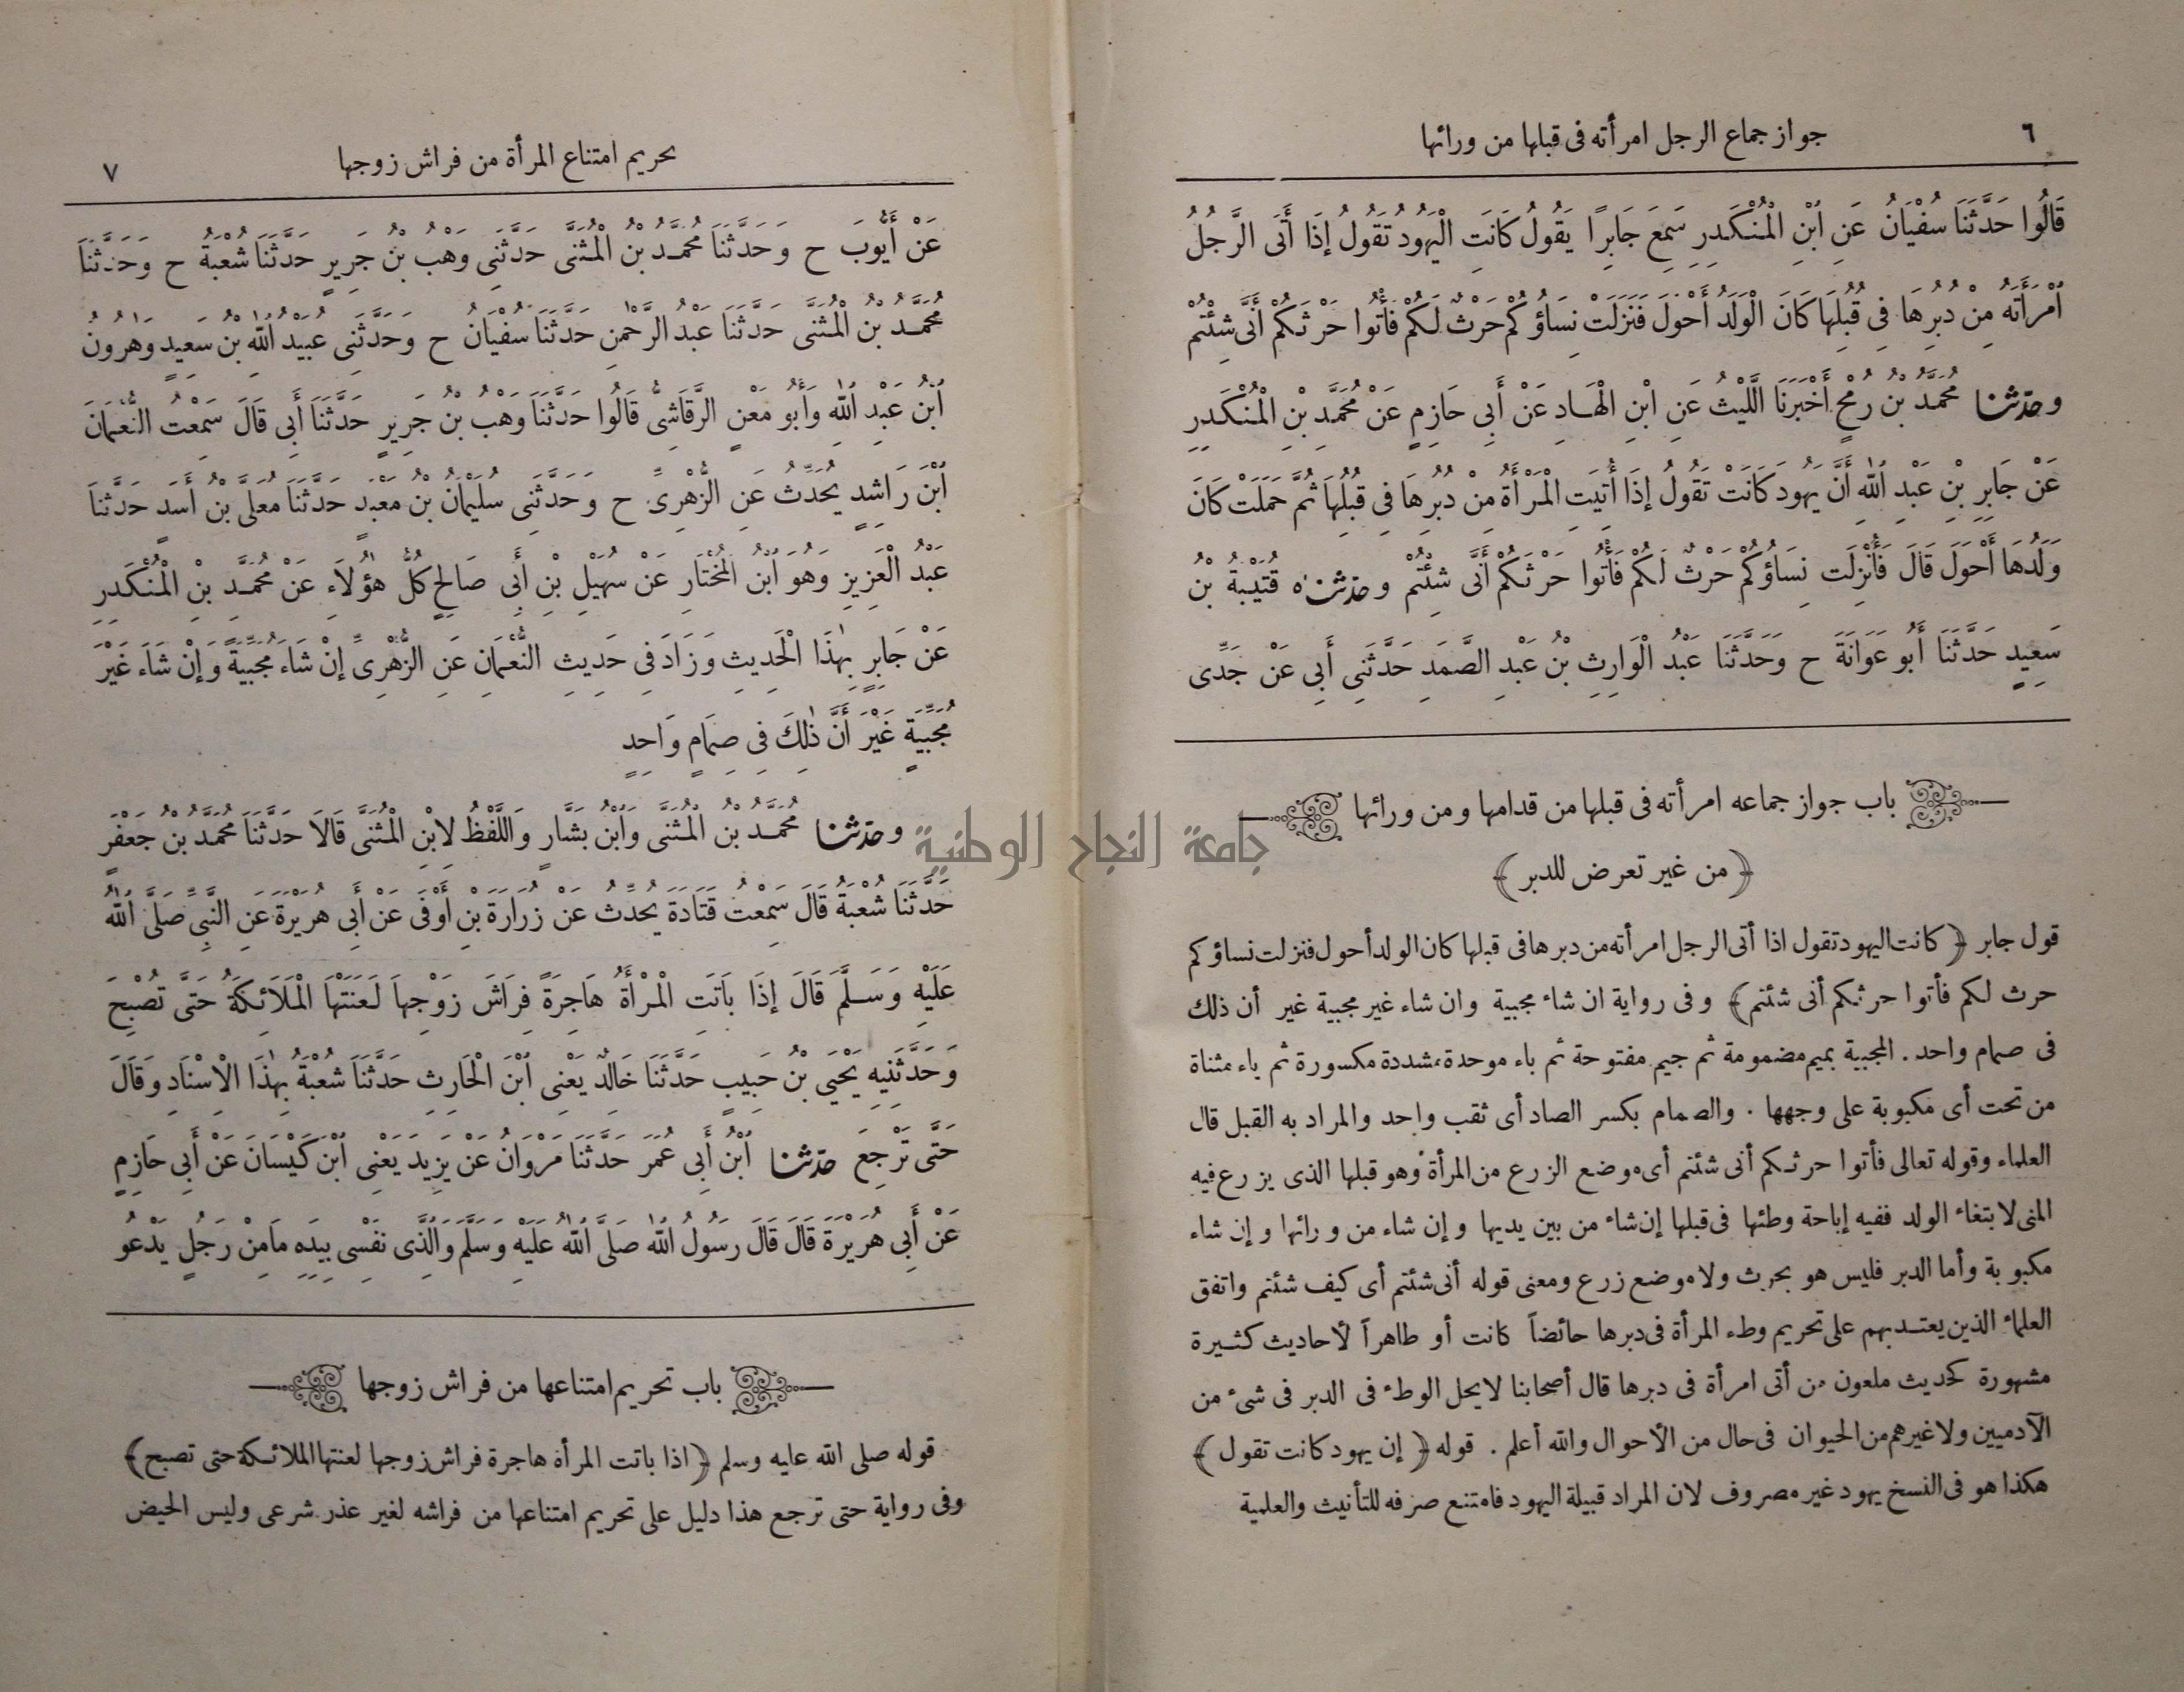 ٦
جواز جماع الرجل امرأته فى قبلها من ورائها
قَالُوا حَدَّثَنَا سُفْيَانُ عَنِ ابْنِ الْمُنْكَدِرِ سَمِعَ جَابِرًا يَقُولُ كَانَتِ الْيَهُودُ تَقُولُ إِذَا أَتَى الرَّجُلُ
امْرَأَتَهُ مِنْ دُبُرِهَا فِى قُبُلِهَا كَانَ الْوَلَدُ أَحْوَلَ فَنَزَلَتْ نِسَاؤُكُمْ حَرْثٌ لَكُمْ فَأْتُوا حَرْثَكُمْ أَنَّى شِئْتُمْ
و حدّثنا مُحَمَّدُ بْنُ رُمْحٍ أَخْبَرَنَا اللَّيْثُ عَنِ ابْنِ الْهَادِ عَنْ أَبِى حَازِمٍ عَنْ مُحَمَّدِ بْنِ الْمُنْكَدِرِ
عَنْ جَابِرِ بْنِ عَبْدِ اللّٰهِ أَنَّ يَهُودَ كَانَتْ تَقُولُ إِذَا أُتِيَتِ الْمَرْأَةُ مِنْ دُبُرِهَا فِى قُبُلِهَا ثُمَّ حَمَلَتْ كَانَ
وَلَدُهَا أَحْوَلَ قَالَ فَأُنْزِلَت نِسَاؤُكُمْ حَرْثٌ لَكُمْ فَأْتُوا حَرْثَكُمْ أَنَّى شِئْتُمْ و حدّثناه قُتَيْبَةُ بْنُ
سَعِيدٍ حَدَّثَنَا أَبُو عَوَانَةَ ح وَحَدَّثَنَا عَبْدُ الْوَارِثِ بْنُ عَبْدِ الصَّمَدِ حَدَّثَنِى أَبِى عَنْ جَدِّى
باب جواز جماعه امرأته فى قبلها من قدامها ومن ورائها
﴿من غير تعرض للدبر﴾
قول جابر ﴿كانت اليهود تقول اذا أتى الرجل امرأته من دبرها فى قبلها كان الولد أحول فنزلت نساؤكم
حرث لكم فأتوا حرثكم أنى شئتم﴾ وفى رواية ان شاء مجبية وان شاء غير مجبية غير أن ذلك
فى صمام واحد. المجبية بميم مضمومة ثم جيم مفتوحة ثم باء موحدة مشددة مكسورة ثم ياء مثناة
من تحت أى مكبوبة على وجهها. والصمام بكسر الصاد أى ثقب واحد والمراد به القبل قال
العلماء وقوله تعالى فأتوا حرثكم أنى شئتم أى موضع الزرع من المرأة وهو قبلها الذى يزرع فيه
المنى لابتغاء الولد ففيه إباحة وطئها فى قبلها إن شاء من بين يديها وإن شاء من ورائها وإن شاء
مكبوبة وأما الدبر فليس هو بحرث ولا موضع زرع ومعنى قوله أنى شئتم أى كيف شئتم واتفق
العلماء الذين يعتد بهم على تحريم وطء المرأة فى دبرها حائضاً كانت أو طاهراً لأحاديث كثيرة
مشهورة كحديث ملعون من أتى امرأة فى دبرها قال أصحابنا لا يحل الوطء فى الدبر فى شىء من
الآدميين ولا غيرهم من الحيوان فى حال من الأحوال والله أعلم. قوله ﴿إن يهود كانت تقول﴾
هكذا هو فى النسخ يهود غير مصروف لان المراد قبيلة اليهود فامتنع صرفه للتأنيث والعلمية
تحريم امتناع المرأة من فراش زوجها
٧
عَنْ أَيُّوبَ ح وَحَدَّثَنَا مُحَمَّدُ بْنُ الْمُثَنَّى حَدَّثَنِى وَهْبُ بْنُ جَرِيرٍ حَدَّثَنَا شُعْبَةُ ح وَحَدَّثَنَا
مُحَمَّدُ بْنُ الْمُثَنَّى حَدَّثَنَا عَبْدُ الرَّحْمٰنِ حَدَّثَنَا سُفْيَانُ ح وَحَدَّثَنِى عُبَيْدُ اللّٰهِ بْنُ سَعِيدٍ وَهٰرُونُ
ابْنُ عَبْدِ اللّٰهِ وَأَبُو مَعْنٍ الرَّقَاشِىُّ قَالُوا حَدَّثَنَا وَهْبُ بْنُ جَرِيرٍ حَدَّثَنَا أَبِى قَالَ سَمِعْتُ النُّعْمَانَ
ابْنَ رَاشِدٍ يُحَدِّثُ عَنِ الزُّهْرِىِّ ح وَحَدَّثَنِى سُلَيْمَانُ بْنُ مَعْبَدٍ حَدَّثَنَا مُعَلَّى بْنُ أَسَدٍ حَدَّثَنَا
عَبْدُ الْعَزِيزِ وَهُوَ ابْنُ الْمُخْتَارِ عَنْ سُهَيْلِ بْنِ أَبِى صَالِحٍ كُلُّ هٰؤُلَاءِ عَنْ مُحَمَّدِ بْنِ الْمُنْكَدِرِ
عَنْ جَابِرٍ بِهٰذَا الْحَدِيثِ وَزَادَ فِى حَدِيثِ النُّعْمَانِ عَنِ الزُّهْرِىِّ إِنْ شَاءَ مُجَبِّيَةً وَإِنْ شَاءَ غَيْرَ
مُجَبِّيَةٍ غَيْرَ أَنَّ ذٰلِكَ فِى صِمَامٍ وَاحِدٍ
و حدّثنا مُحَمَّدُ بْنُ الْمُثَنَّى وَابْنُ بَشَّارٍ وَاللَّفْظُ لِابْنِ الْمُثَنَّى قَالَا حَدَّثَنَا مُحَمَّدُ بْنُ جَعْفَرٍ
حَدَّثَنَا شُعْبَةُ قَالَ سَمِعْتُ قَتَادَةَ يُحَدِّثُ عَنْ زُرَارَةَ بْنِ أَوْفَى عَنْ أَبِى هُرَيْرَةَ عَنِ النَّبِىِّ صَلَّى اللّٰهُ
عَلَيْهِ وَسَلَّمَ قَالَ إِذَا بَاتَتِ الْمَرْأَةُ هَاجِرَةً فِرَاشَ زَوْجِهَا لَعَنَتْهَا الْمَلَائِكَةُ حَتَّى تُصْبِحَ
وَحَدَّثَنِيهِ يَحْيَى بْنُ حَبِيبٍ حَدَّثَنَا خَالِدٌ يَعْنِى ابْنَ الْحَارِثِ حَدَّثَنَا شُعْبَةُ بِهٰذَا الْإِسْنَادِ وَقَالَ
حَتَّى تَرْجِعَ حدّثنا ابْنُ أَبِى عُمَرَ حَدَّثَنَا مَرْوَانُ عَنْ يَزِيدَ يَعْنِى ابْنَ كَيْسَانَ عَنْ أَبِى حَازِمٍ
عَنْ أَبِى هُرَيْرَةَ قَالَ قَالَ رَسُولُ اللّٰهِ صَلَّى اللّٰهُ عَلَيْهِ وَسَلَّمَ وَالَّذِى نَفْسِى بِيَدِهِ مَا مِنْ رَجُلٍ يَدْعُو
باب تحريم امتناعها من فراش زوجها
قوله صلى الله عليه وسلم ﴿اذا باتت المرأة هاجرة فراش زوجها لعنتها الملائكة حتى تصبح﴾
وفى رواية حتى ترجع هذا دليل على تحريم امتناعها من فراشه لغير عذر شرعى وليس الحيض
جامعة النجاح الوطنية